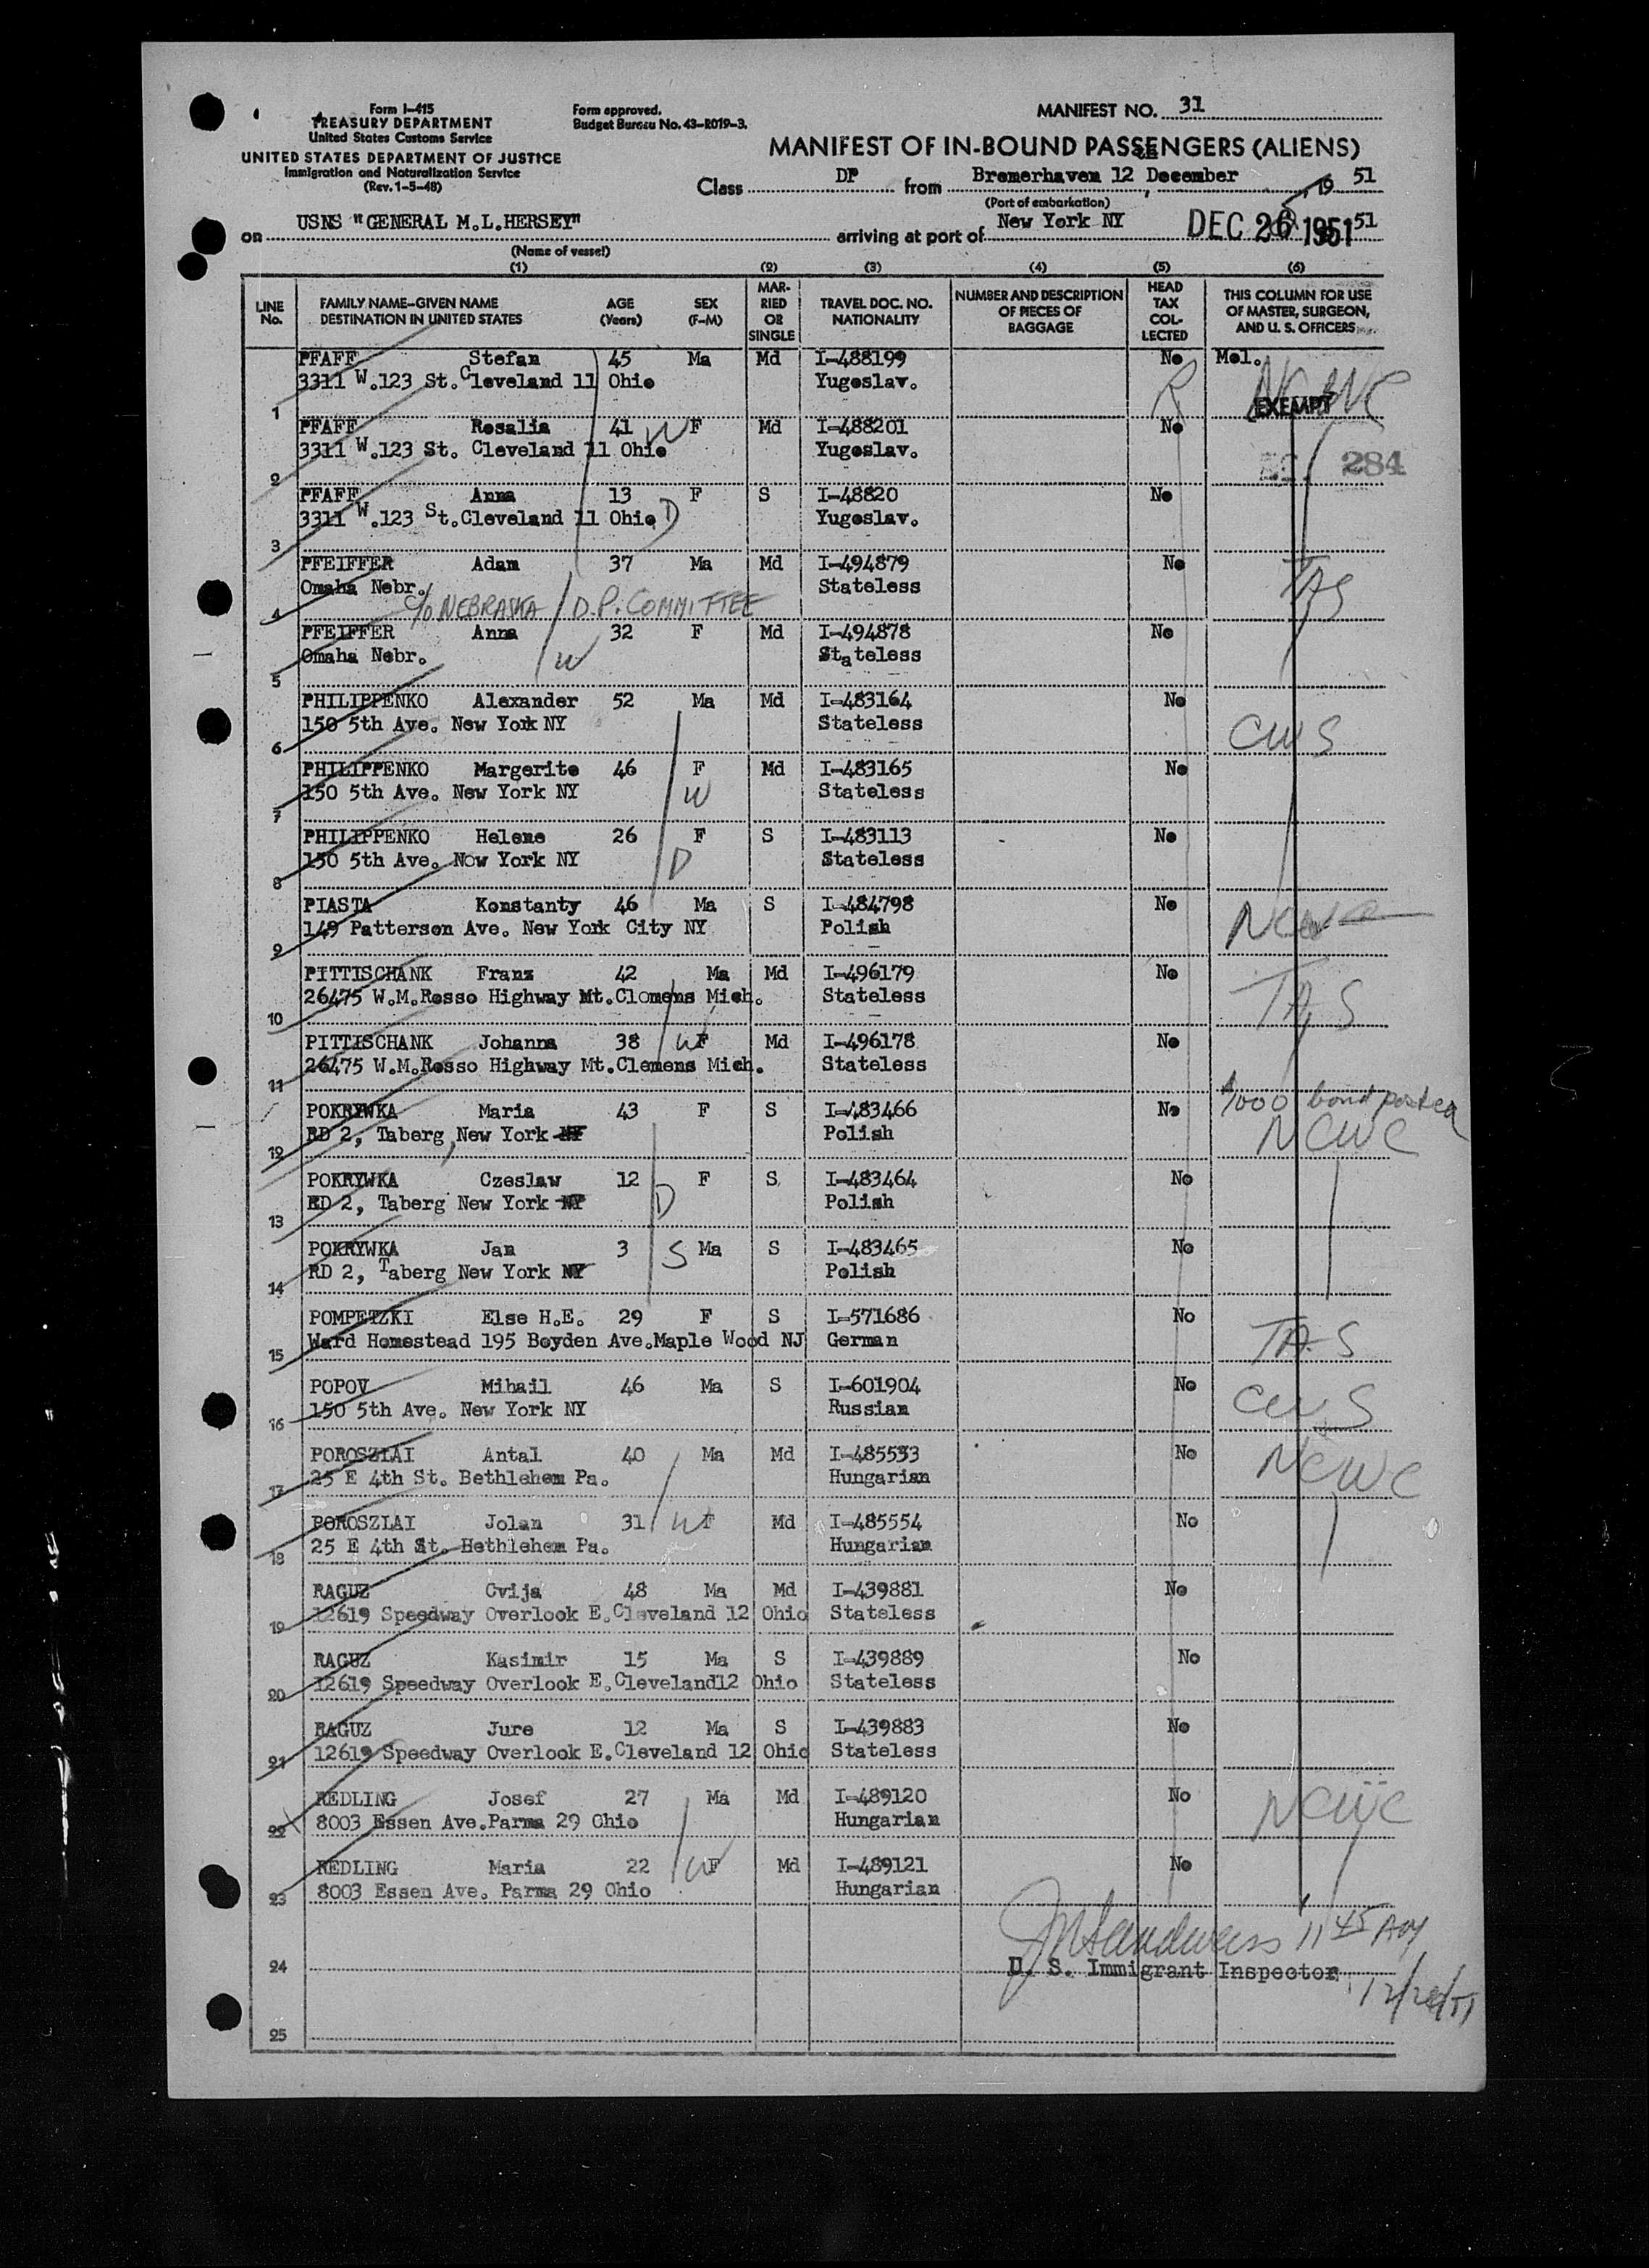 Form I-415
TREASURY DEPARTMENT
United States Customs Service
UNITED STATES DEPARTMENT OF JUSTICE
Immigration and Naturalization Service
(Rev. 1-5-48)
Form approved.
Budget Bureau No. 43-R019-3.
MANIFEST NO. 31
MANIFEST OF IN-BOUND PASSENGERS (ALIENS)
Class DP from Bremerhaven 12th December, 19 51
(Port of embarkation)
on USNS "GENERAL M.L.HERSEY" arriving at port of New York NY DEC 26 1951 51
(Name of vessel)
(1) (2) (3) (4) (5) (6)
LINE No. FAMILY NAME-GIVEN NAME DESTINATION IN UNITED STATES AGE (Years) SEX (F-M) MARRIED OR SINGLE TRAVEL DOC. NO. NATIONALITY NUMBER AND DESCRIPTION OF PIECES OF BAGGAGE HEAD TAX COLLECTED THIS COLUMN FOR USE OF MASTER, SURGEON, AND U. S. OFFICERS
PFAFF Stefan 45 Ma Md I-488199 No Mol.
3311 W.123 St. Cleveland 11 Ohio Yugoslav. NCWC
1 EXEMPT
PFAFF Rosalia 41 W F Md I-488201 No
3311 W.123 St. Cleveland 11 Ohio Yugoslav. 284
2
PFAFF Anna 13 F S I-48820 No
3311 W.123 St.Cleveland 11 Ohio D Yugoslav.
3
PFEIFFER Adam 37 Ma Md I-494879 No
Omaha Nebr. Stateless TAS
4 c/o NEBRASKA D.P. COMMITTEE
PFEIFFER Anna 32 F Md I-494878 No
Omaha Nebr. W Stateless
5
PHILIPPENKO Alexander 52 Ma Md I-483164 No
150 5th Ave. New York NY Stateless CWS
6
PHILIPPENKO Margerite 46 F Md I-483165 No
150 5th Ave. New York NY W Stateless
7
PHILIPPENKO Helene 26 F S I-483113 No
150 5th Ave. New York NY D Stateless
8
PIASTA Konstanty 46 Ma S I-484798 No
149 Patterson Ave. New York City NY Polish NCWC
9
PITTISCHANK Franz 42 Ma Md I-496179 No
26475 W.M.Rosso Highway Mt.Clomens Mich. Stateless TAS
10
PITTISCHANK Johanna 38 W F Md I-496178 No
26475 W.M.Rosso Highway Mt.Clemens Mich. Stateless
11
POKRYWKA Maria 43 F S I-483466 No $1000 bond posted
RD 2, Taberg, New York NY Polish NCWC
12
POKRYWKA Czeslaw 12 F S I-483464 No
RD 2, Taberg New York NY D Polish
13
POKRYWKA Jan 3 S Ma S I-483465 No
RD 2, Taberg New York NY Polish
14
POMPETZKI Else H.E. 29 F S I-571686 No
Ward Homestead 195 Boyden Ave.Maple Wood NJ German TAS
15
POPOV Mihail 46 Ma S I-601904 No
150 5th Ave. New York NY Russian CWS
16
POROSZLAI Antal 40 Ma Md I-485553 No
25 E 4th St. Bethlehem Pa. Hungarian NCWC
17
POROSZLAI Jolan 31 W F Md I-485554 No
25 E 4th St. Hethlehem Pa. Hungarian
18
RAGUZ Cvija 48 Ma Md I-439881 No
12619 Speedway Overlook E.Cleveland 12 Ohio Stateless
19
RAGUZ Kasimir 15 Ma S I-439889 No
12619 Speedway Overlook E.Cleveland12 Ohio Stateless
20
RAGUZ Jure 12 Ma S I-439883 No
12619 Speedway Overlook E.Cleveland 12 Ohio Stateless
21
REDLING Josef 27 Ma Md I-489120 No
8003 Essen Ave.Parma 29 Ohio Hungarian NCWC
22
REDLING Maria 22 W F Md I-489121 No
8003 Essen Ave. Parma 29 Ohio Hungarian
23
11 45 AM
24 U. S. Immigrant Inspector
12/26/51
25